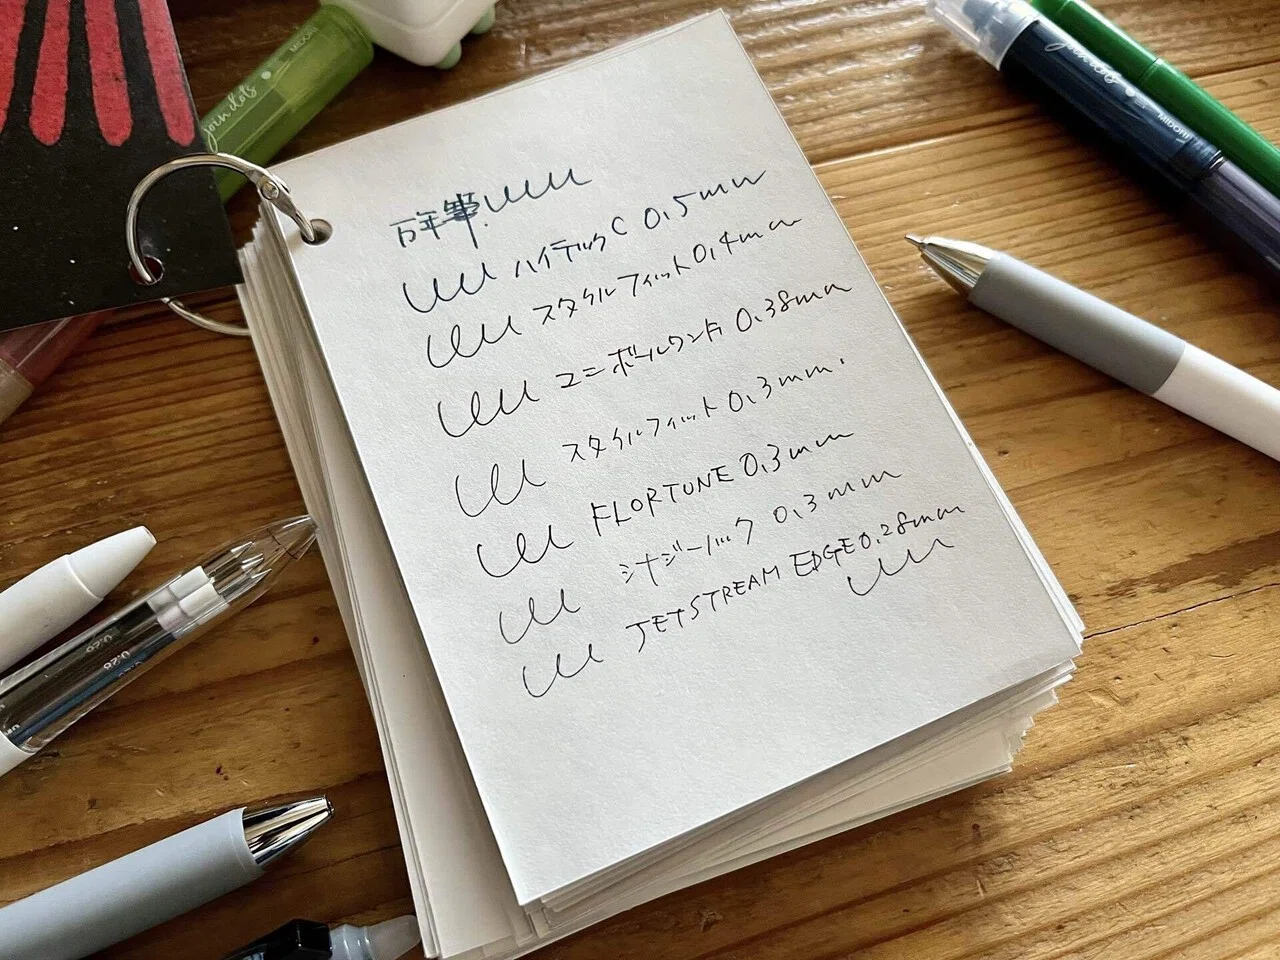 万年筆
ハイテックC 0.5mm
スタイルフィット0.4mm
ユニボールワンF 0.38mm
スタイルフィット 0.3mm.
FLORTUNE 0.3mm
シナジーノック 0.3mm
JETSTREAM EDGE0.28mm
join dots
MIDORI
join dots
MIDORI
0.28